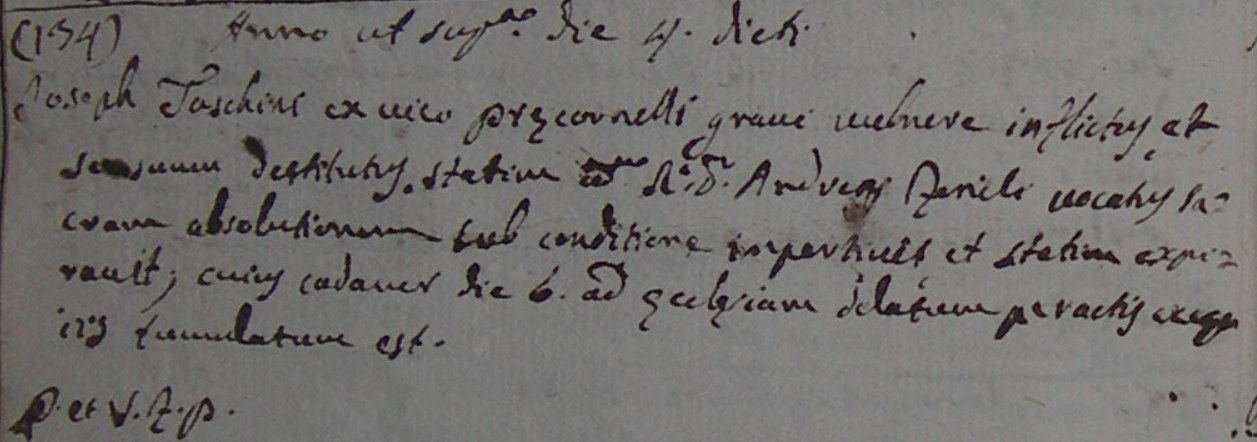 (134) Anno ut sup.ª die 4. dicti
Joseph Taschini ex vico Pręcornelli gravi vulnere inflictus et
sensuum destitutus statim R.s D. Andreas vocatus sa=
cram absolutionem sub conditione impertivit et statim expi=
ravit; cuius cadaver die 6. ad ęcclęsiam delatum peractis exequ
iis tumulatum est.
P. et V. F. P.